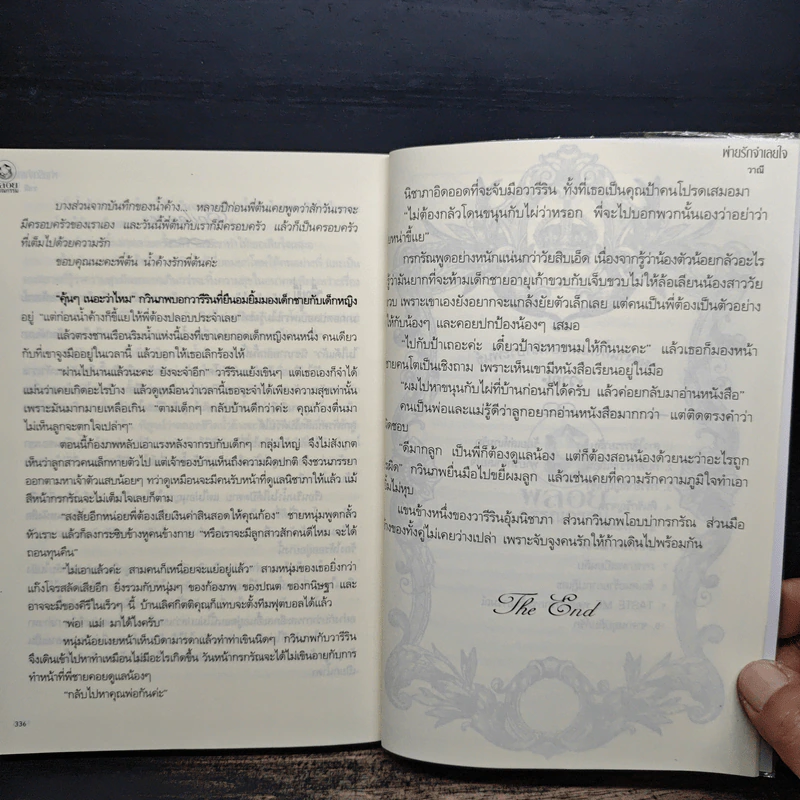 บางส่วนจากบันทึกของน้ำค้าง... หลายปีก่อนพี่ต้นเคยพูดว่าสักวันเราจะ
มีครอบครัวของเราเอง และวันนี้พี่ต้นกับเราก็มีครอบครัว แล้วก็เป็นครอบครัว
ที่เต็มไปด้วยความรัก
ขอบคุณนะคะพี่ต้น น้ำค้างรักพี่ต้นค่ะ
“คุ้นๆ เนอะว่าไหม” กวินภพบอกวาริรินที่ยืนอมยิ้มมองเด็กชายกับเด็กหญิง
อยู่ “แต่ก่อนน้ำค้างก็ขี้แยให้พี่ต้องปลอบประจำเลย”
แล้วตรงชานเรือนริมน้ำแห่งนี้เองที่เขาเคยกอดเด็กหญิงคนหนึ่ง คนเดียว
กับที่เขาจูงมืออยู่ในเวลานี้ แล้วบอกให้เลิกร้องไห้
“ผ่านไปนานแล้วนะคะ ยังจะจำอีก” วาริรินแย้งเขินๆ แต่เธอเองก็จำได้
แม่นว่าเคยเกิดอะไรบ้าง แล้วดูเหมือนว่าเวลานี้เธอจะจำได้เพียงความสุขเท่านั้น
เพราะมันมากมายเหลือเกิน “ตามเด็กๆ กลับบ้านดีกว่าค่ะ คุณก้องตื่นมา
ไม่เห็นลูกจะตกใจเปล่าๆ”
ตอนนี้ก้องภพหลับเอาแรงหลังจากรบกับเด็กๆ กลุ่มใหญ่ จึงไม่สังเกต
เห็นว่าลูกสาวคนเล็กหายตัวไป แต่เจ้าของบ้านเห็นถึงความผิดปกติ จึงชวนภรรยา
ออกตามหาเจ้าตัวแสบน้อยๆ ทว่าดูเหมือนจะมีคนรับหน้าที่ดูแลนิชาภาไว้ได้ แม้
สีหน้ากรกรัณจะไม่เต็มใจเลยก็ตาม
“สงสัยอีกหน่อยพี่ต้องเสียเงินค่าสินสอดให้คุณก้อง” ชายหนุ่มพูดกลั้ว
หัวเราะ แล้วก็ลงกระซิบข้างหูคนข้างกาย “หรือเราจะมีลูกสาวสักคนดีไหม จะได้
ถอนทุนคืน”
“ไม่เอาแล้วค่ะ สามคนก็เหนื่อยจะแย่อยู่แล้ว” สามหนุ่มของเธอยิ่งกว่า
แก๊งโจรสลัดเสียอีก ยิ่งรวมกับหนุ่มๆ ของก้องภพ ของปณต ของกนิษฐา และ
อาจจะมีของคีรีในเร็วๆ นี้ บ้านเลิศกิตติคุณก็แทบจะตั้งทีมฟุตบอลได้แล้ว
“พ่อ! แม่! มาได้ไงครับ”
หนุ่มน้อยเงยหน้าเห็นบิดามารดาแล้วทำท่าเขินนิดๆ กวินภพกับวาริริน
จึงเดินเข้าไปหาทำเหมือนไม่มีอะไรเกิดขึ้น วันหน้ากรกรัณจะได้ไม่เขินอายกับการ
ทำหน้าที่พี่ชายคอยดูแลน้องๆ
“กลับไปหาคุณพ่อกันค่ะ”
336
พ่ายรักจำเลยใจ
วาณี
นิชาภาอิดออดที่จะจับมือวาริริน ทั้งที่เธอเป็นคุณป้าคนโปรดเสมอมา
“ไม่ต้องกลัวโดนขนุนกับไผ่ว่าหรอก พี่จะไปบอกพวกนั้นเองว่าอย่าว่า
หน่าขี้แย”
กรกรัณพูดอย่างหนักแน่นกว่าวัยสิบเอ็ด เนื่องจากรู้ว่าน้องตัวน้อยกลัวอะไร
รู้ว่ามันยากที่จะห้ามเด็กชายอายุเก้าขวบกับเจ็บขวบไม่ให้ล้อเลียนน้องสาววัย
ขวบ เพราะเขาเองยังอยากจะแกล้งยัยตัวเล็กเลย แต่คนเป็นพี่ต้องเป็นตัวอย่าง
ให้กับน้องๆ และคอยปกป้องน้องๆ เสมอ
“ไปกับป้าเถอะค่ะ เดี๋ยวป้าจะหาขนมให้กินนะคะ” แล้วเธอก็มองหน้า
ายคนโตเป็นเชิงถาม เพราะเห็นเขามีหนังสือเรียนอยู่ในมือ
“ผมไปหาขนุนกับไผ่ที่บ้านก่อนก็ได้ครับ แล้วค่อยกลับมาอ่านหนังสือ”
คนเป็นพ่อและแม่รู้ดีว่าลูกอยากอ่านหนังสือมากกว่า แต่ติดตรงคำว่า
ดชอบ
“ดีมากลูก เป็นพี่ก็ต้องดูแลน้อง แต่ก็ต้องสอนน้องด้วยนะว่าอะไรถูก
ผิด” กวินภพยื่นมือไปขยี้ผมลูก แล้วเช่นเคยที่ความรักความภูมิใจทำเอา
ยิ้มไม่หุบ
แขนข้างหนึ่งของวาริรินอุ้มนิชาภา ส่วนกวินภพโอบบ่ากรกรัณ ส่วนมือ
ของทั้งคู่ไม่เคยว่างเปล่า เพราะจับจูงคนรักให้ก้าวเดินไปพร้อมกัน
The End